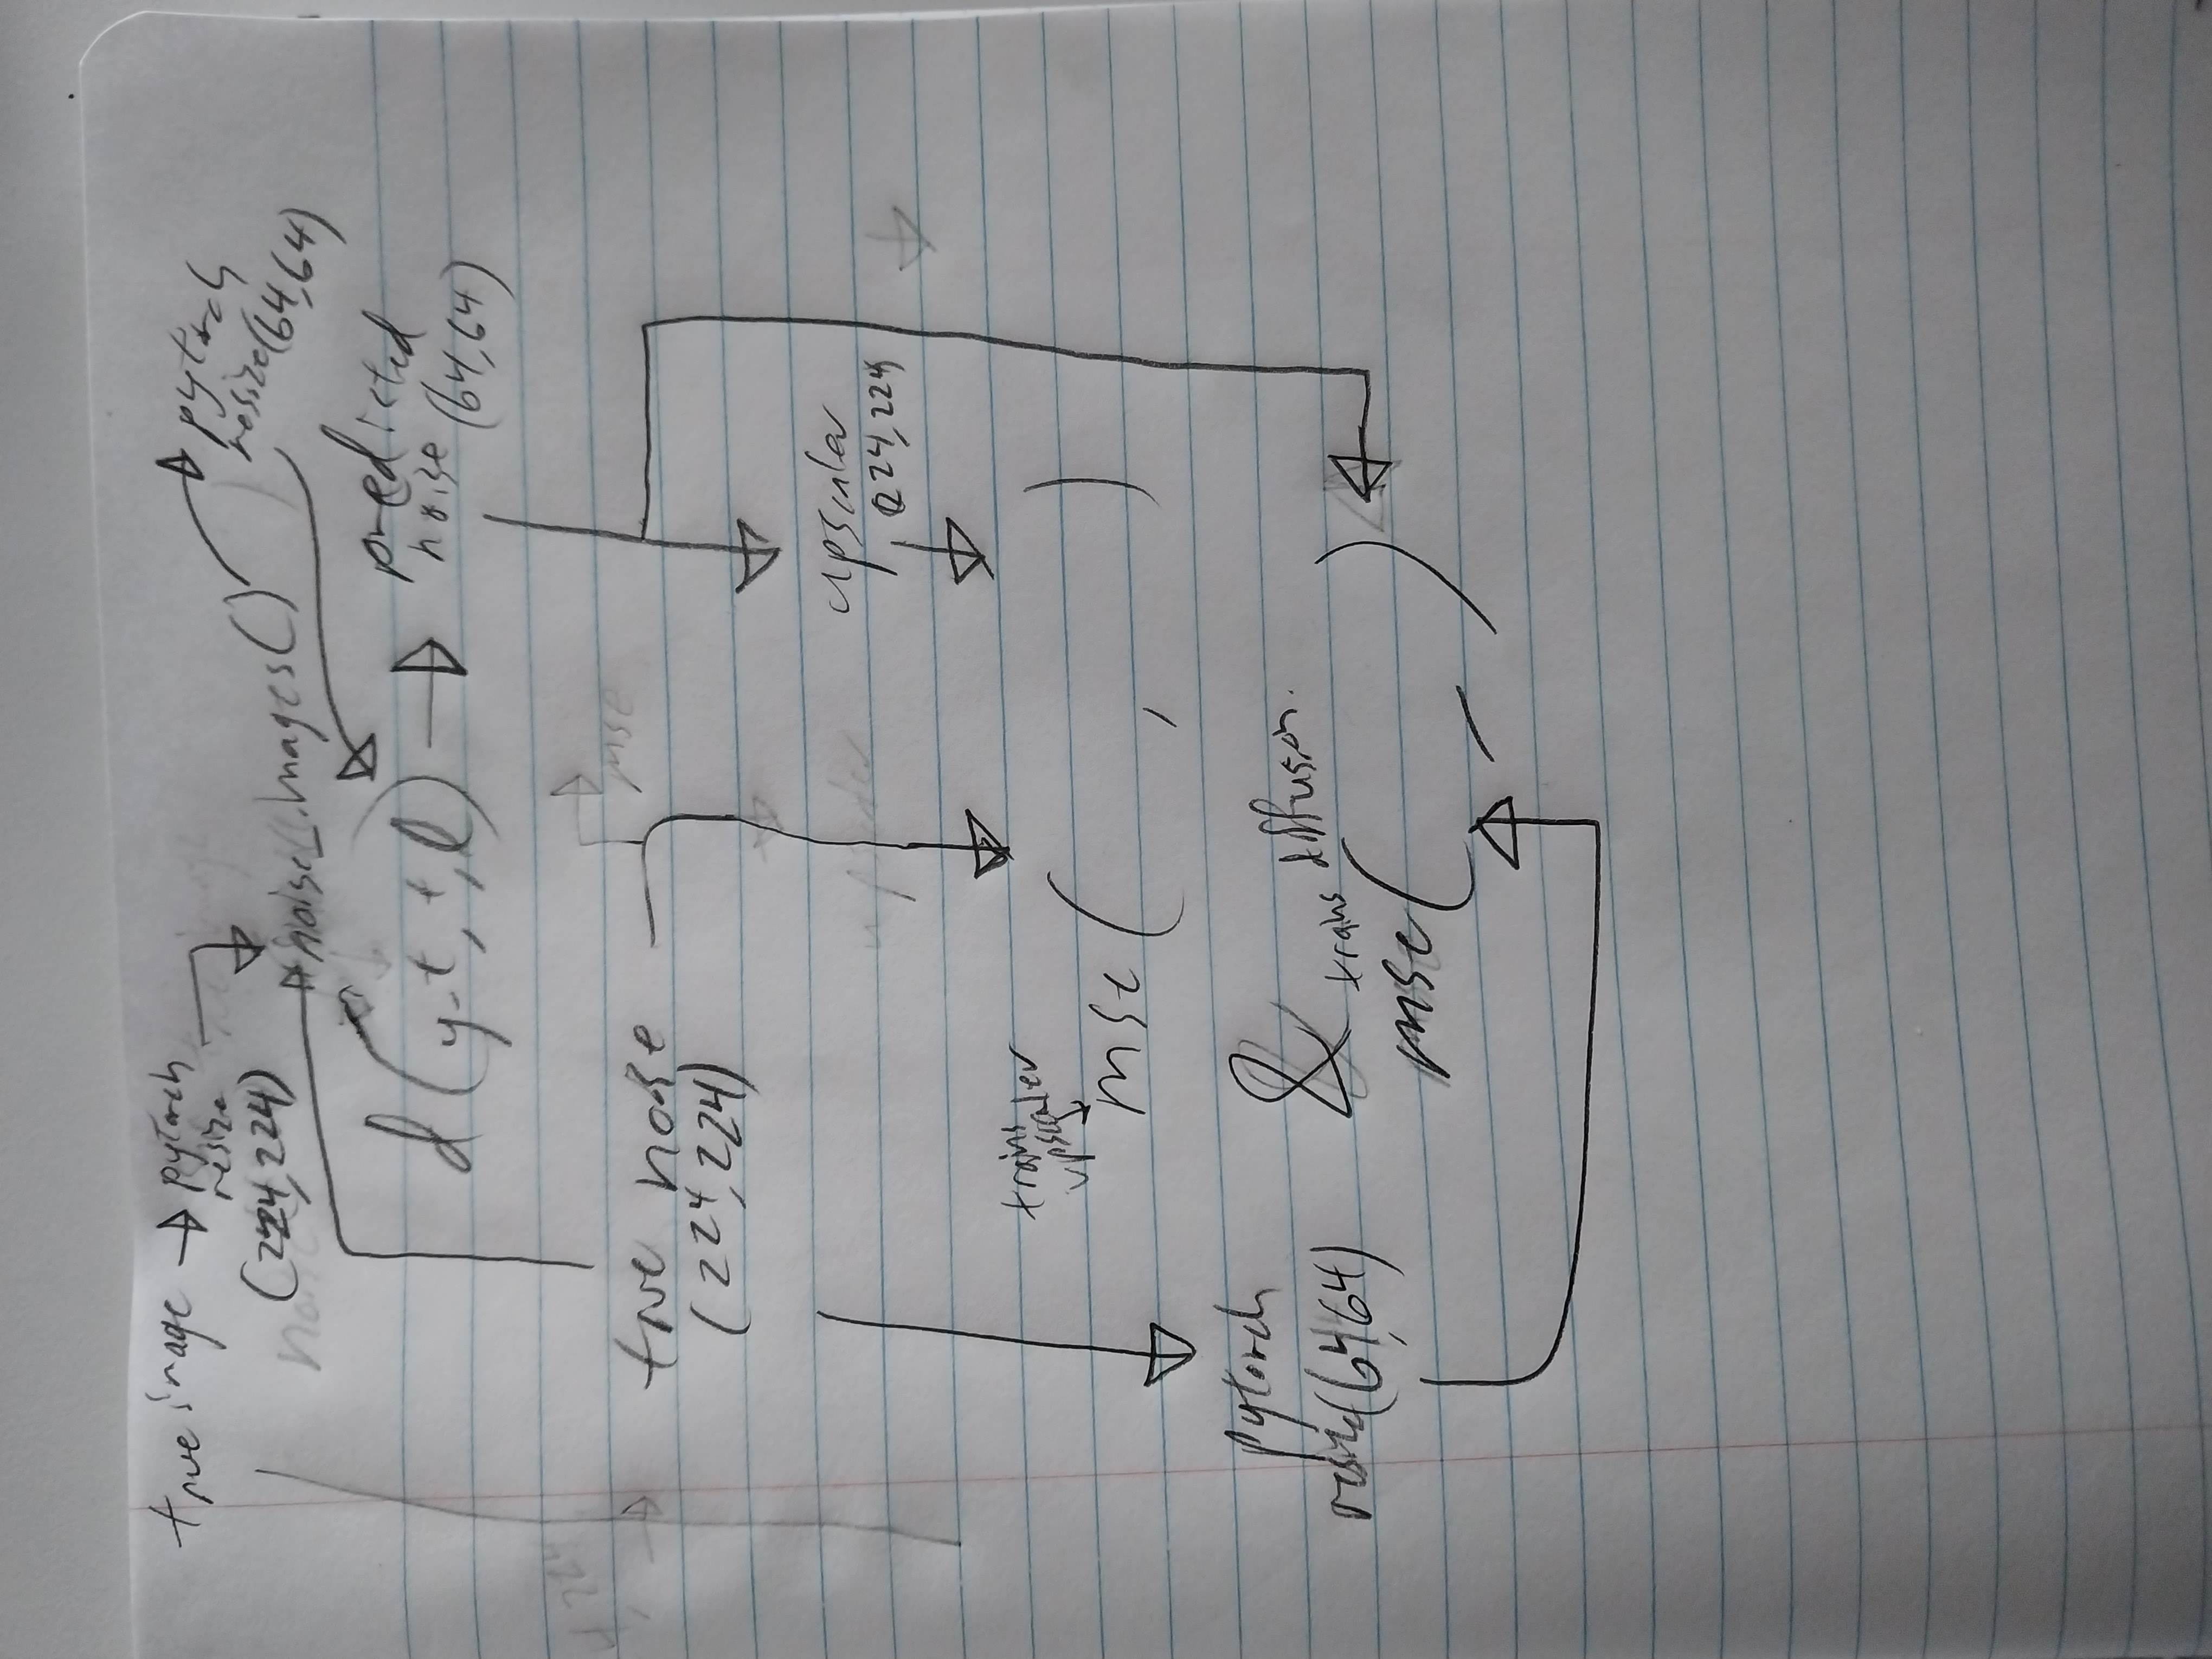 true image → pytorch
resize
(224,224)
noise_images()
pytorch
resize(64,64)
d(y_t, t, l) → predicted
noise
(64,64)
4,224
mse
true noise
(224,224)
upscaler
upscaler
224,224
trains
upscaler
mse( , )
pytorch
resize(64,64)
&
trains diffusion.
mse( , )